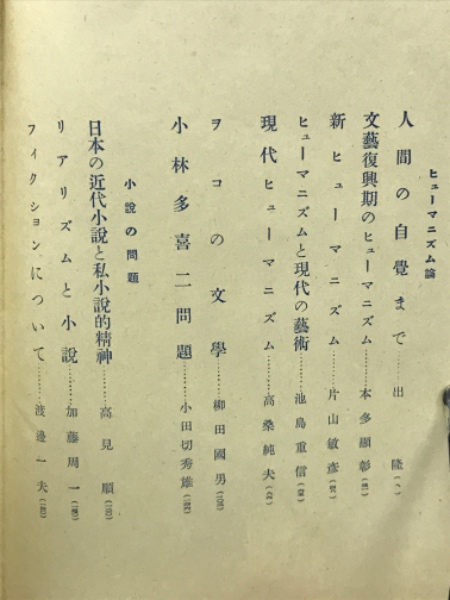 ヒューマニズム論
人間の自覺まで……出隆
文藝復興期のヒューマニズム……本多顯彰
新ヒューマニズム……片山敏彦
ヒューマニズムと現代の藝術……池島重信
現代ヒューマニズム……高桑純夫
ヲコの文學……柳田國男
小林多喜二問題……小田切秀雄
小説の問題
日本の近代小説と私小説的精神……高見順
リアリズムと小説……加藤周一
フィクションについて……渡邊一夫